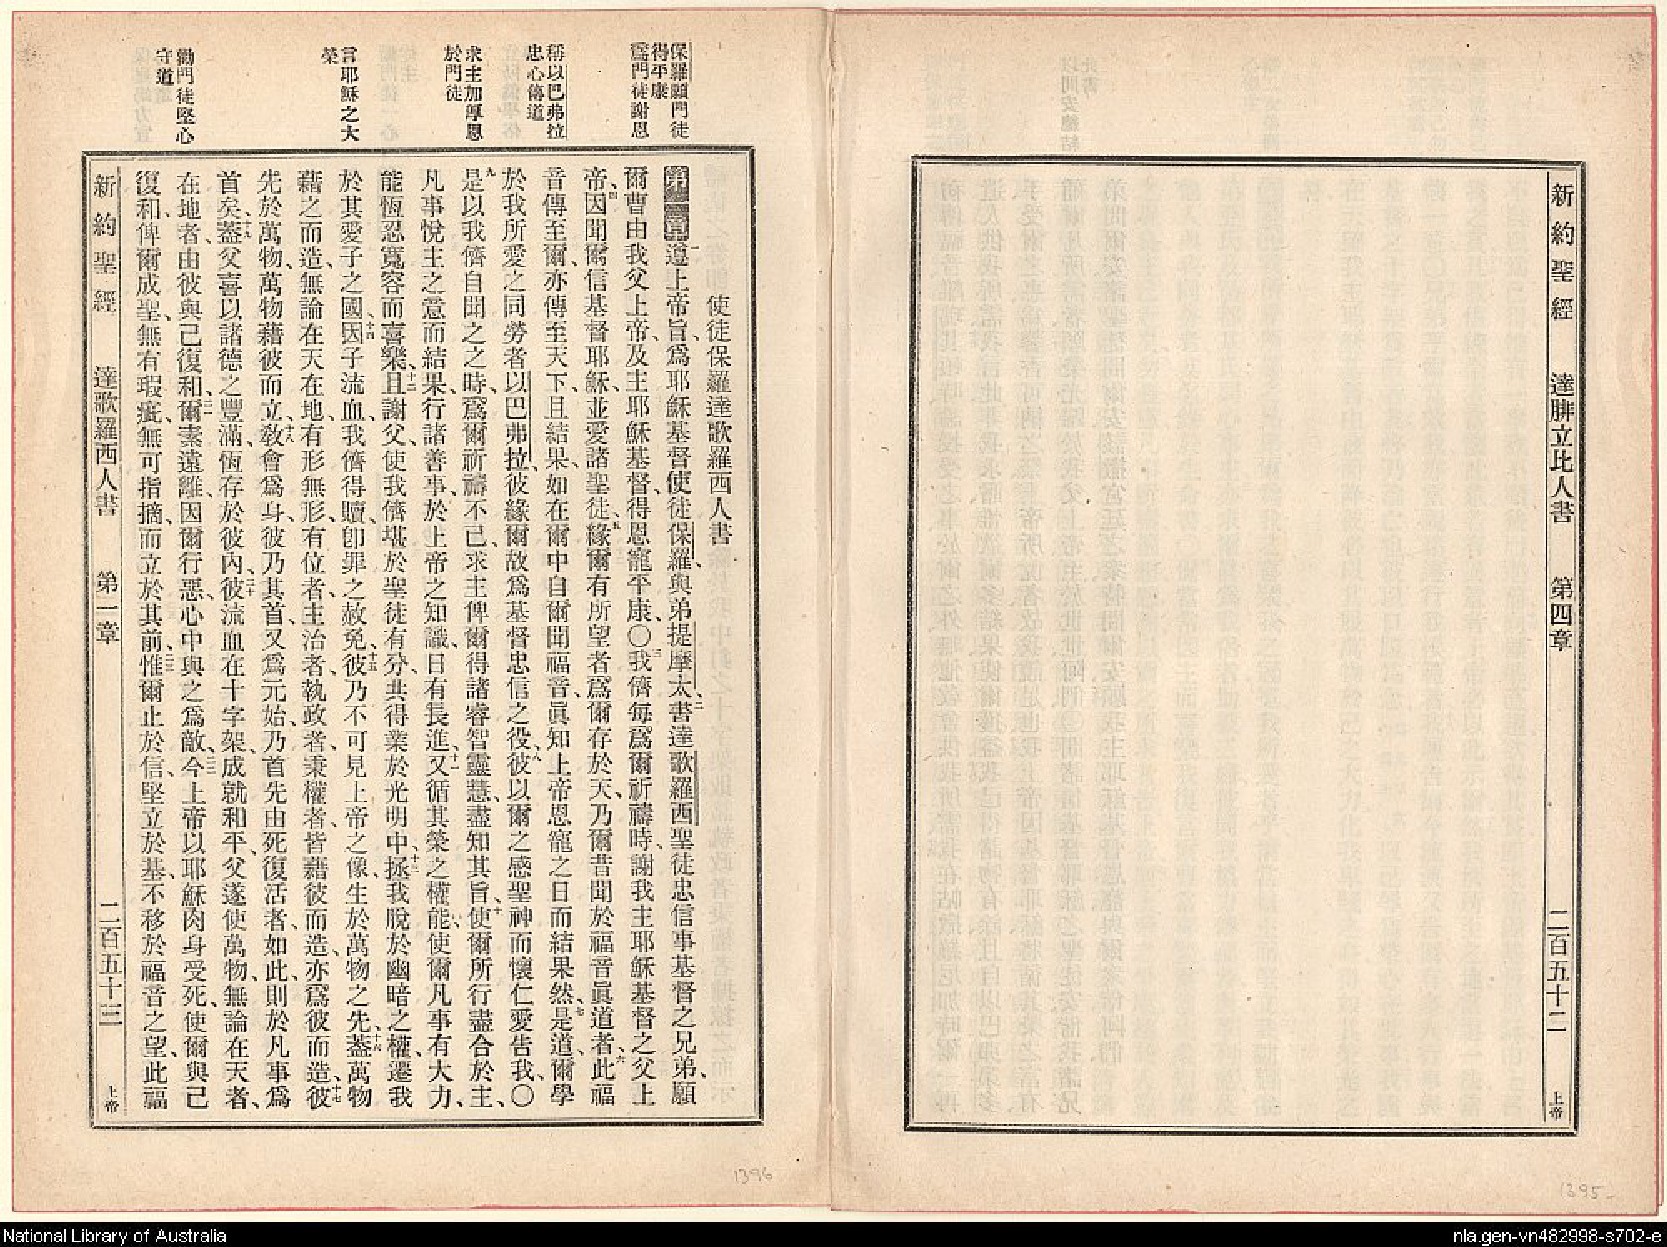 新約聖經 達腓立比人書 第四章 二百五十二 上帝
1395
保羅願門徒得平康
爲門徒謝恩
稱以巴弗拉忠心傳道
求主加厚恩於門徒
言耶穌之大榮
勸門徒堅心守道
使徒保羅達歌羅西人書
第一章 一遵上帝旨、爲耶穌基督使徒保羅、與弟提摩太、二書達歌羅西聖徒忠信事基督之兄弟、願
爾曹由我父上帝、及主耶穌基督、得恩寵平康〇三我儕每爲爾祈禱時、謝我主耶穌基督之父上
帝、四因聞爾信基督耶穌、並愛諸聖徒、五緣爾有所望者、爲爾存於天、乃爾昔聞於福音眞道者、六此福
音傳至爾、亦傳至天下、且結果、如在爾中自爾聞福音、眞知上帝恩寵之日而結果然、七是道、爾學
於我所愛之同勞者以巴弗拉、彼緣爾故、爲基督忠信之役、八彼以爾之感聖神而懷仁愛告我、〇
九是以我儕自聞之之時、爲爾祈禱不已、求主俾爾得諸睿智靈慧、盡知其旨、十使爾所行、盡合於主、
凡事悅主之意而結果、行諸善事、於上帝之知識、日有長進、十一又循其榮之權能、使爾凡事有大力、
能恆忍寬容而喜樂、十二且謝父、使我儕堪於聖徒有分、共得業於光明中、十三拯我脫於幽暗之權、遷我
於其愛子之國、十四因子流血、我儕得贖、卽罪之赦免、十五彼乃不可見上帝之像、生於萬物之先、十六蓋萬物
藉之而造、無論在天在地、有形無形、有位者、主治者、執政者、秉權者、皆藉彼而造、亦爲彼而造、十七彼
先於萬物、萬物藉彼而立、十八敎會爲身、彼乃其首、又爲元始、乃首先由死復活者、如此、則於凡事爲
首矣、十九蓋父喜以諸德之豐滿、恆存於彼內、二十彼流血在十字架、成就和平、父遂使萬物、無論在天者、
在地者、由彼與己復和、二一爾素遠離、因爾行惡、心中與之爲敵、二二今上帝以耶穌肉身受死、使爾與己
復和、俾爾成聖、無有瑕疵、無可指摘、而立於其前、二三惟爾止於信、堅立於基、不移於福音之望、此福
新約聖經 達歌羅西人書 第一章 二百五十三 上帝
1396
National Library of Australia
nla.gen-vn482998-s702-e